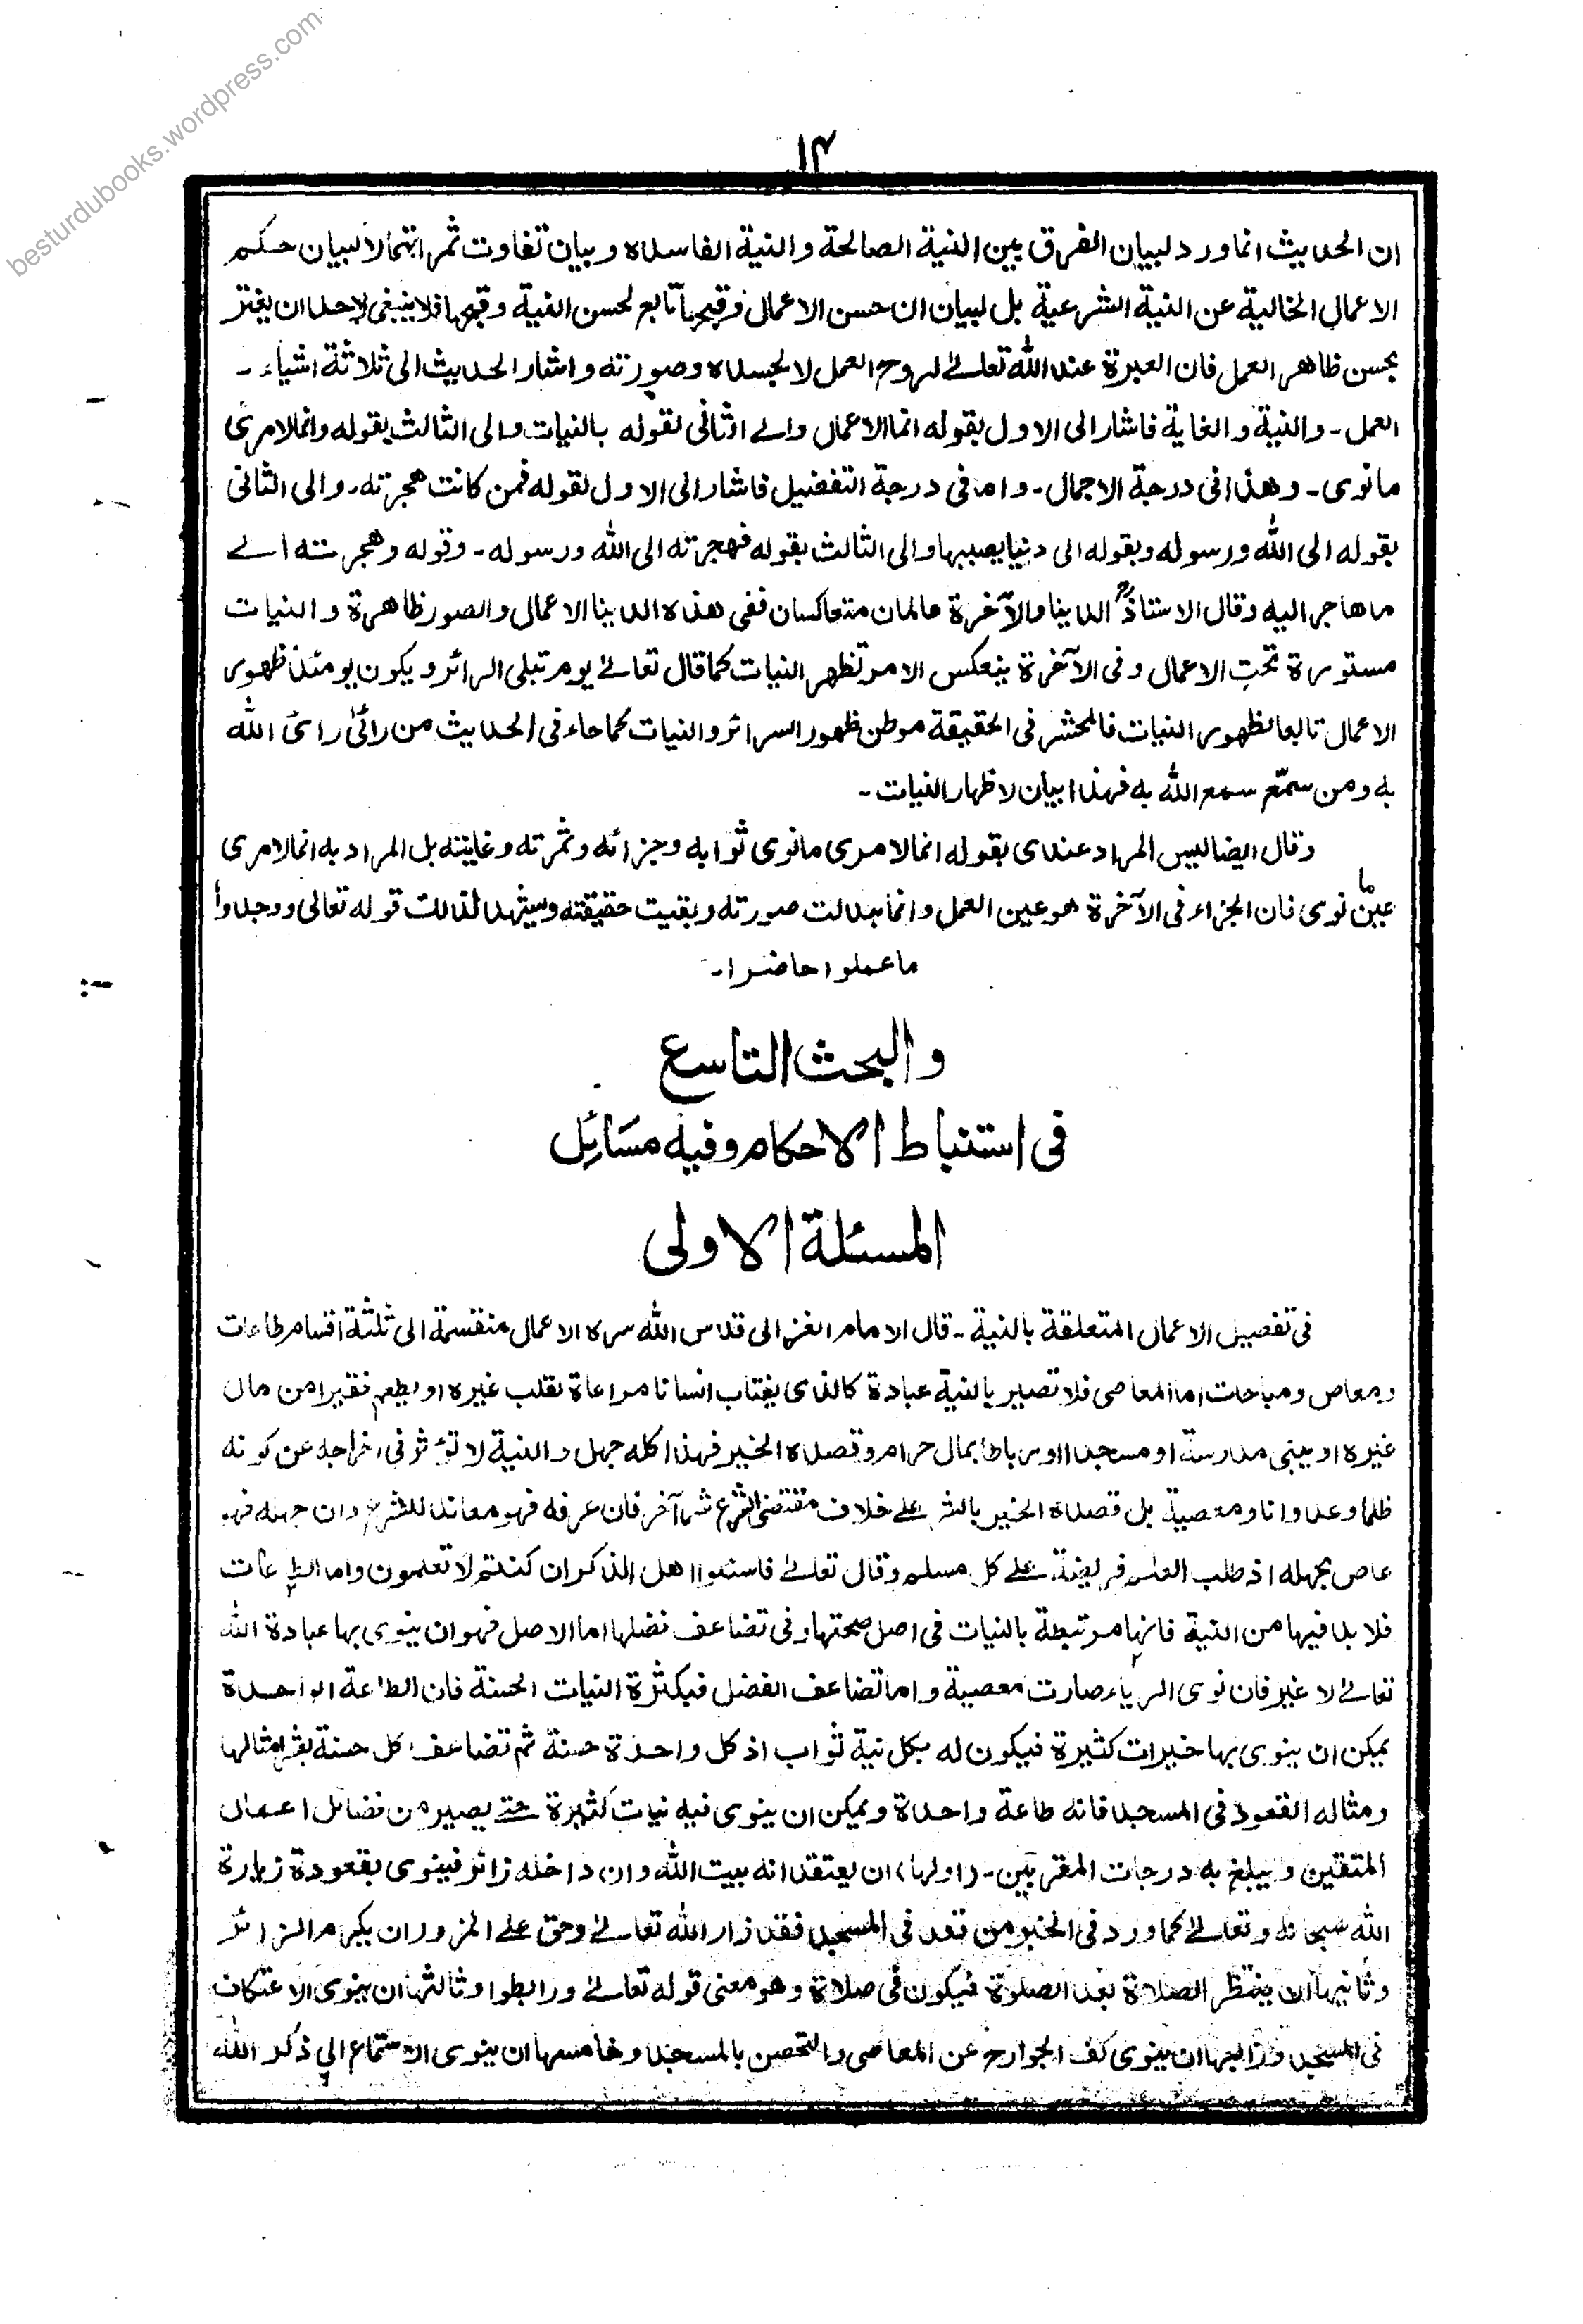 besturdubooks.wordpress.com
۱۴
ان الحديث انما ورد لبيان الفرق بين النية الصالحة والنية الفاسدة وبيان تفاوت ثمراتهما لا لبيان حكم
الاعمال الخالية عن النية الشرعية بل لبيان ان حسن الاعمال وقبحها تابع لحسن النية وقبحها فلا ينبغى لاحد ان يغتر
بحسن ظاهر العمل فان العبرة عند الله تعالىٰ لروح العمل لا لجسده وصورته واشار الحديث الى ثلاثة اشياء ۔
العمل ۔ والنية والغاية فاشار الى الاول بقوله انما الاعمال والے الثانى بقوله بالنيات والى الثالث بقوله وانما لامرئ
ما نوى ۔ وهذا فى درجة الاجمال ۔ واما فى درجة التفضيل فاشار الى الاول بقوله فمن كانت هجرته ۔ والى الثانى
بقوله الى الله ورسوله وبقوله الى دنيا يصيبها والى الثالث بقوله فهجرته الى الله ورسوله ۔ وقوله وهجرتته الے
ما هاجر اليه وقال الاستاذ الدينا والآخرة عالمان متعاكسان ففى هذه الدينا الاعمال والصور ظاهرة والنيات
مستورة تحت الاعمال وفى الآخرة ينعكس الامر تظهر النيات كما قال تعالےٰ يوم تبلى الرائر ويكون يومئذ ظهور
الاعمال تابعا لظهور النيات فالمحشر فى الحقيقة موطن ظهور السرائر والنيات كما جاء فى الحديث من رائىٰ رائ الله
به ومن سمّع سمع الله به فهذا بيان لاظهار النيات ۔
وقال ايضا ليس المراد عندى بقوله انما لامرى ما نوى ثوابه وجزائه وثمرته وغايته بل المراد به انما لامرى
عين ما نوى فان الجزاء فى الآخرة هو عين العمل وانما بدلت صورته وبقيت حقيقته ويشهد لذالك قوله تعالى ووجدوا
ما عملوا حاضرا ۔
والبحث التاسع
فى استنباط الاحكام وفيه مسَائِل
المسئلة الاولى
فى تفصيل الاعمال المتعلقة بالنية ۔ قال الامام الغزالى قدس الله سره الاعمال منقسمة الى ثلثة اقسام طاعات
ومعاص ومباحات اما المعاصى فلا تصير بالنية عبادة كالذى يغتاب انسانا مراعاة لقلب غيره او يطعم فقيرا من مال
غيره او يبنى مدرسة او مسجدا او رباطا بمال حرام وقصده الخير فهذا كله جهل والنية لا تؤثر فى اخراجه عن كونه
ظلما وعدوانا ومعصية بل قصده الخير بالشر علے خلاف مقتضى الشرع شر آخر فان عرفه فهو معاند للشرع وان جهله فهو
عاص بجهله اذ طلب العلم فريضة علے كل مسلم وقال تعالےٰ فاسئلوا اهل الذكر ان كنتم لا تعلمون واما الطاعات
فلا بد فيها من النية فانها مرتبطة بالنيات فى اصل صحتها وفى تضاعف فضلها اما الاصل فهو ان ينوى بها عبادة الله
تعالےٰ لا غير فان نوى الرياء صارت معصية واما تضاعف الفضل فبكثرة النيات الحسنة فان الطاعة الواحدة
يمكن ان ينوى بها خيرات كثيرة فيكون له بكل نية ثواب اذ كل واحدة حسنة ثم تضاعف كل حسنة بعشر امثالها
ومثاله القعود فى المسجد فانه طاعة واحدة ويمكن ان ينوى فيه نيات كثيرة حتےٰ يصير من فضائل اعمال
المتقين ويبلغ به درجات المقربين ۔ (اولها) ان يعتقد انه بيت الله وان داخله زائر فينوى بقعودة زيارة
الله سبحانه وتعالےٰ كما ورد فى الخبر من قعد فى المسجد فقد زار الله تعالےٰ وحق علے المزور ان يكرم الزائر
وثانيها ان ينتظر الصلاة بعد الصلوة فيكون فى صلاة وهو معنى قوله تعالےٰ ورابطوا وثالثها ان ينوى الاعتكاف
فى المسجد ورابعها ان ينوى كف الجوارح عن المعاصى والتحصن بالمسجد وخامسها ان ينوى الاستماع الى ذكر الله